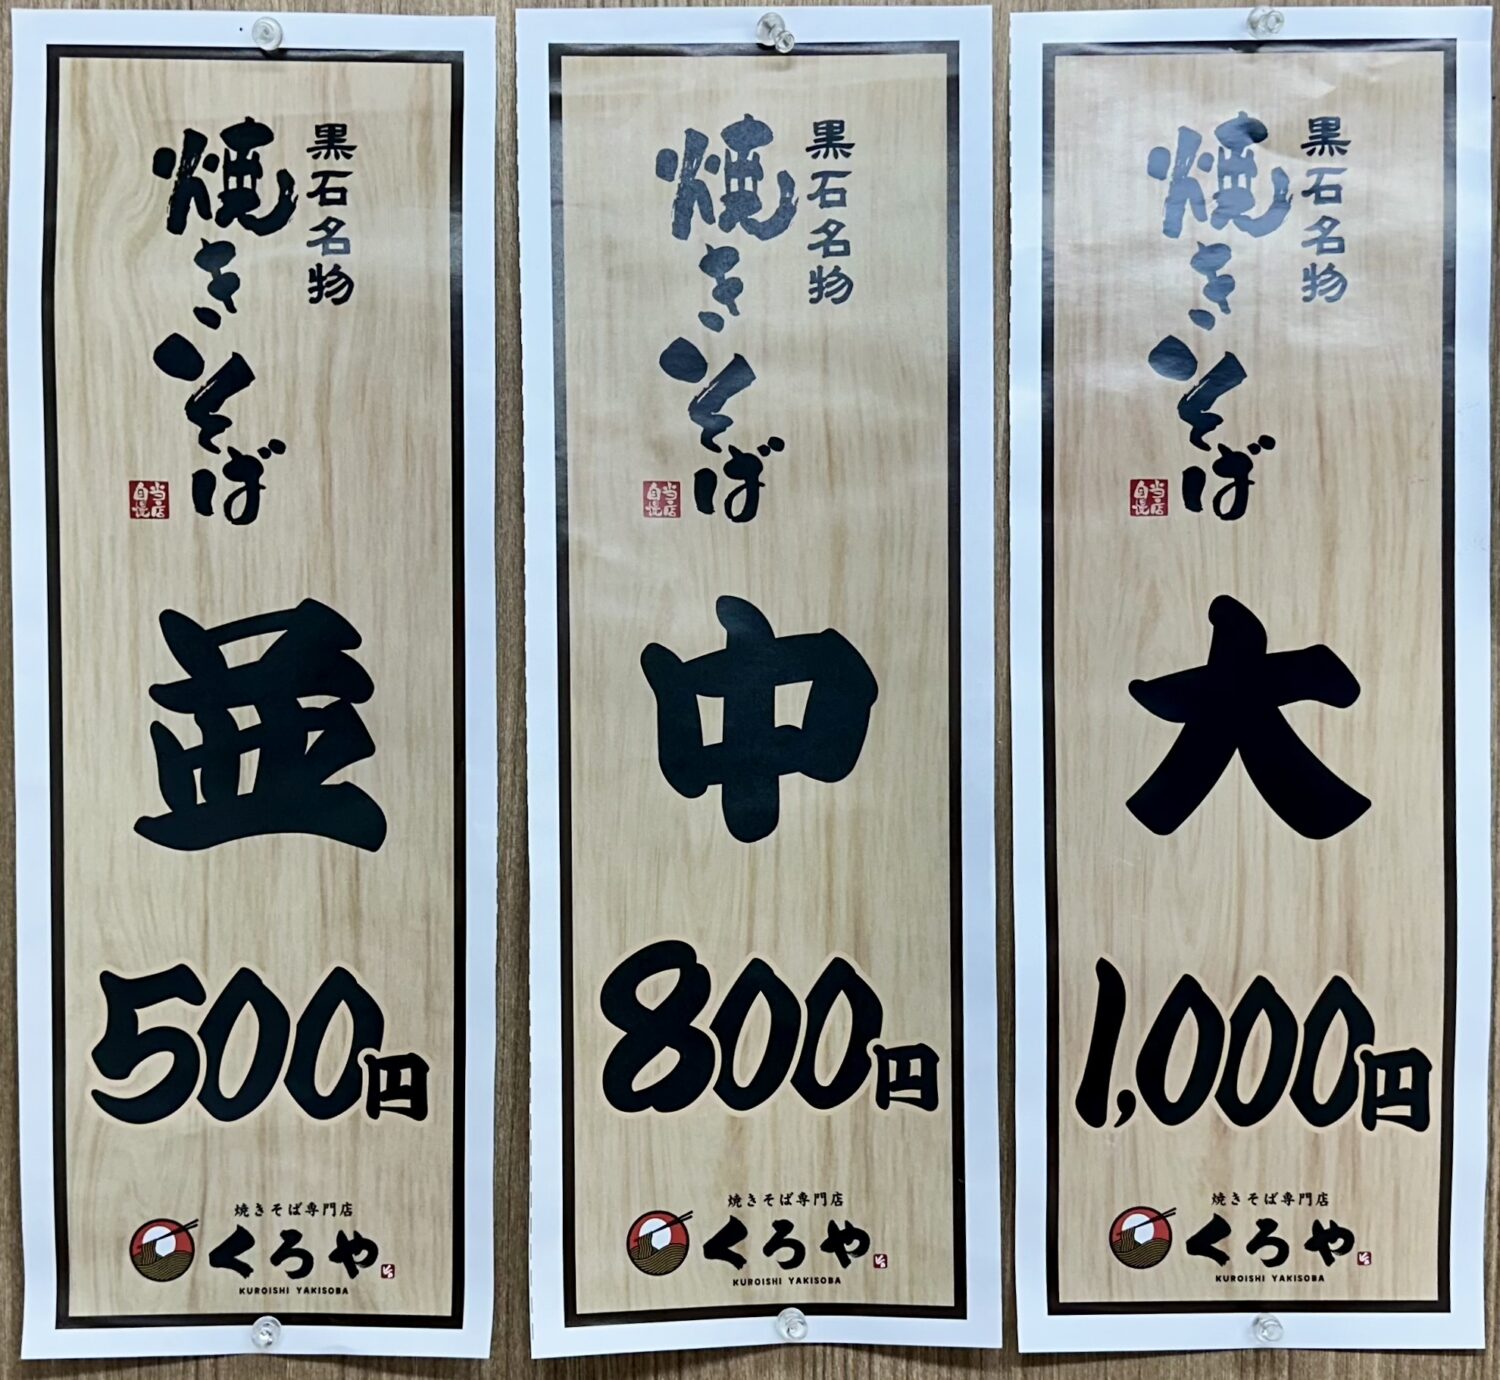 黒石名物
焼きそば
当店自慢
並
500円
焼きそば専門店
くろや
KUROISHI YAKISOBA
黒石名物
焼きそば
当店自慢
中
800円
焼きそば専門店
くろや
KUROISHI YAKISOBA
黒石名物
焼きそば
当店自慢
大
1,000円
焼きそば専門店
くろや
KUROISHI YAKISOBA